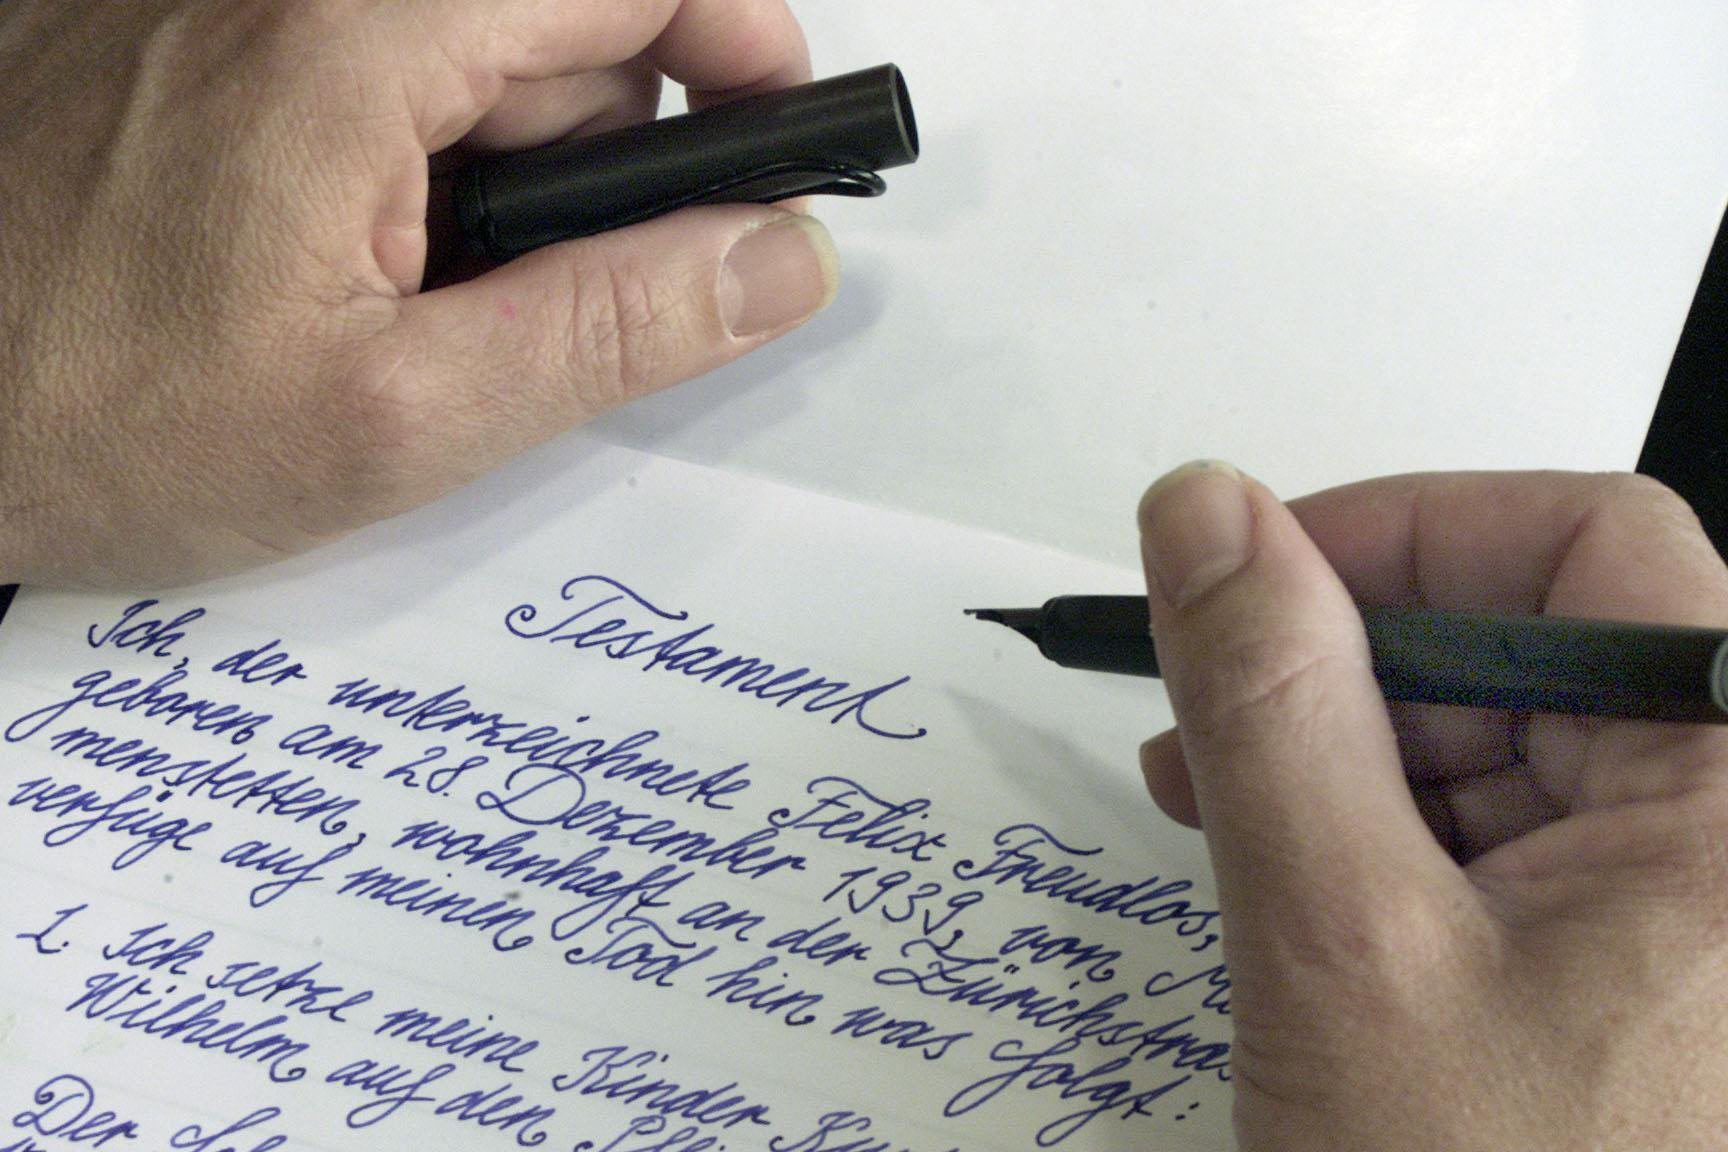 Testament
Ich, der unterzeichnete Felix Freudlos,
geboren am 28. Dezember 1939, von M
menstetten, wohnhaft an der Zürichstras
verfüge auf meinen Tod hin was folgt:
1. Ich setze meine Kinder
Wilhelm auf den
Der